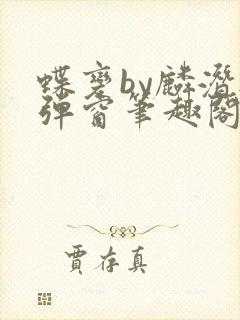 蝶变by麟潜
弹窗笔趣阁
贾存真